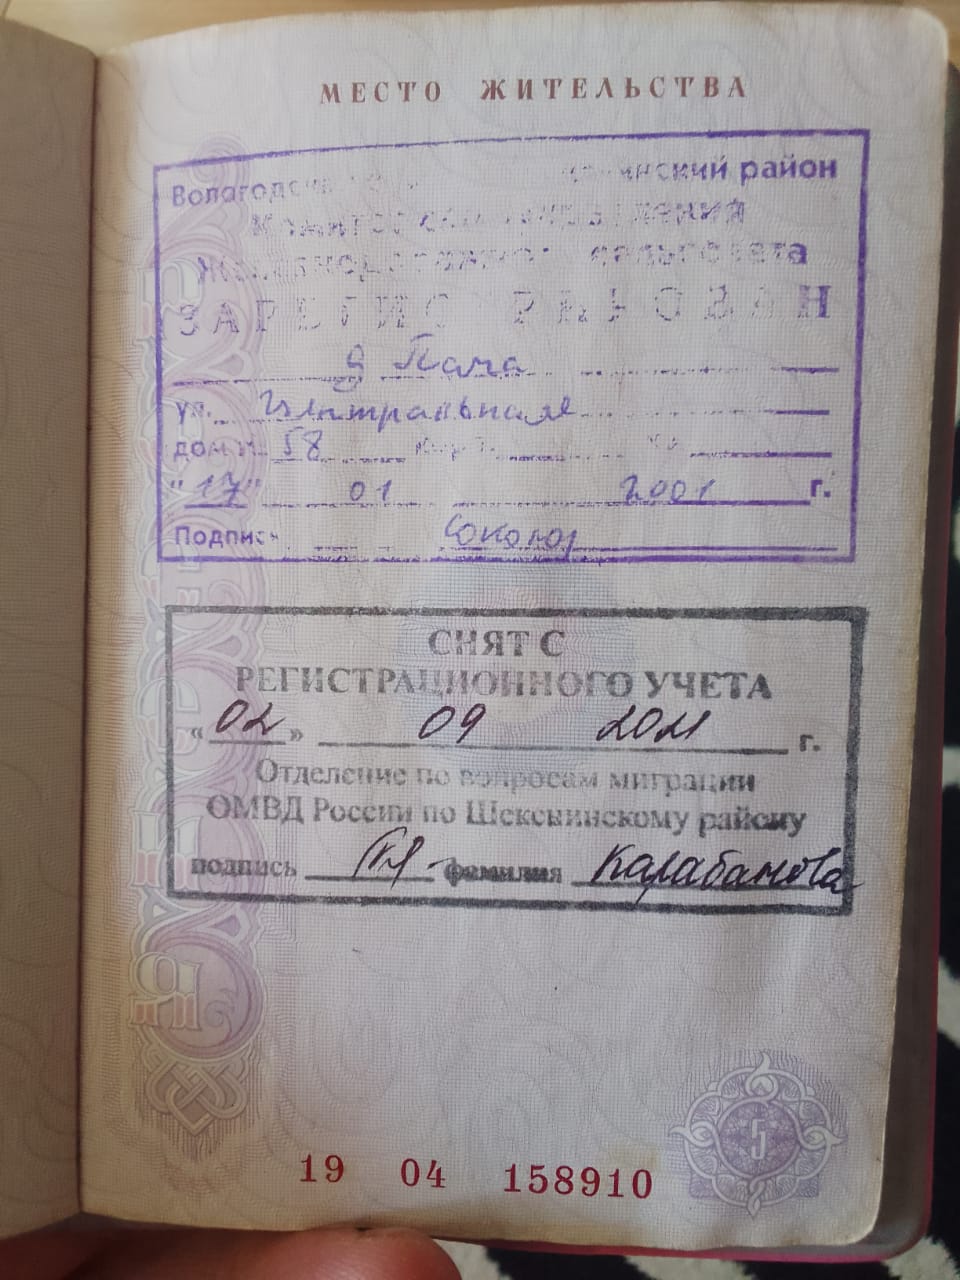 МЕСТО ЖИТЕЛЬСТВА
район
ЗАРЕГИСТРИРОВАН
д Пача
ул. Центральная
дом № 58
"17" 01 2001 г.
Подпись
СНЯТ С
РЕГИСТРАЦИОННОГО УЧЕТА
«02» 09 2021 г.
Отделение по вопросам миграции
ОМВД России по Шекснинскому району
подпись фамилия Карабанова
5
19 04 158910